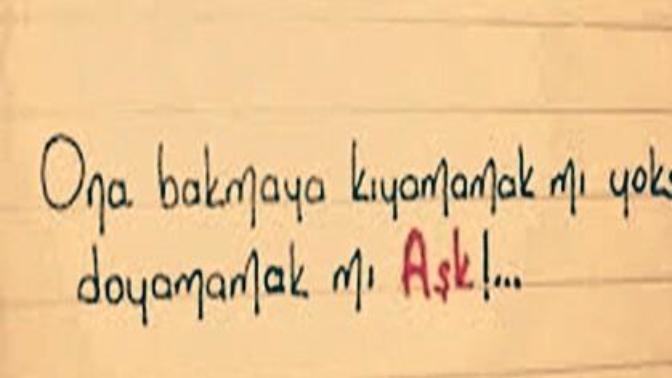 Ona bakmaya kıyamamak mı yoks
doyamamak mı Aşk!...